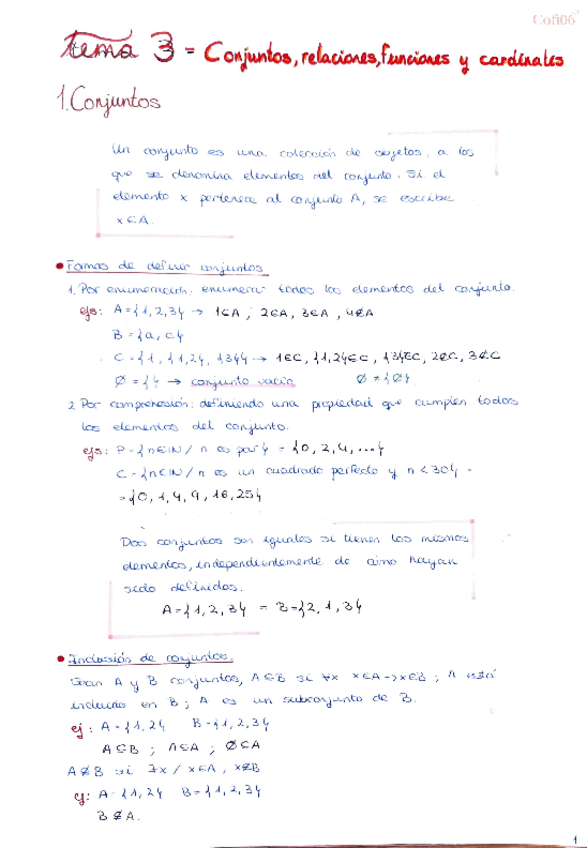 Coñ06
Tema 3 = Conjuntos, relaciones, funciones y cardinales
1. Conjuntos
Un conjunto es una colección de objetos, a los
que se denomina elementos del conjunto. Si el
elemento x pertenece al conjunto A, se escribe
x∈A.
• Formas de definir conjuntos
1. Por enumeración: enumerar todos los elementos del conjunto.
ejs: A={1,2,3} → 1∈A ; 2∈A, 3∈A, 4∉A
B={a,c}
C={1,{1,2},{3}} → 1∈C, {1,2}∈C, {3}∈C, 2∉C, 3∉C
Ø={} → conjunto vacío Ø≠{Ø}
2. Por comprehesión: definiendo una propiedad que cumplen todos
los elementos del conjunto.
ejs: P={n∈ℕ / n es par} = {0, 2, 4, ...}
C={n∈ℕ / n es un cuadrado perfecto y n<30} =
={0, 1, 4, 9, 16, 25}
Dos conjuntos son iguales si tienen los mismos
elementos, independientemente de cómo hayan
sido definidos.
A={1,2,3} = B={2,1,3}
• Inclusión de conjuntos.
Sean A y B conjuntos, A⊆B si ∀x x∈A→x∈B ; A está
incluido en B ; A es un subconjunto de B.
ej: A={1,2} B={1,2,3}
A⊆B ; A⊆A ; Ø⊆A
A⊈B si ∃x / x∈A, x∉B
ej: A={1,2} B={1,2,3}
B⊈A.
1